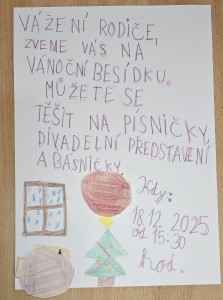 VÁŽENÍ RODIČE,
ZVEME VÁS NA
VÁNOČNÍ BESÍDKU.
MŮŽETE SE
TĚŠIT NA PÍSNIČKY,
DIVADELNÍ PŘEDSTAVENÍ
A BÁSNIČKY.
Kdy:
18.12. 2025
od 15:30
hod.